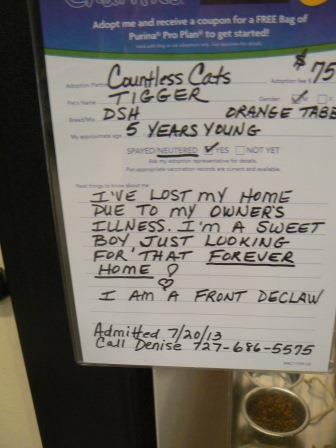 Adopt me and receive a coupon for a FREE Bag of
Purina® Pro Plan® to get started!
Adoption Partner Countless Cats Adoption fee $75
Pet's Name TIGGER Gender: M F
Breed/Mix DSH ORANGE TABB
My approximate age 5 YEARS YOUNG
SPAYED/NEUTERED YES NOT YET
Ask my adoption representative for details.
Pet-appropriate vaccination records are current and available.
Neat things to know about me
I'VE LOST MY HOME
DUE TO MY OWNER'S
ILLNESS. I'M A SWEET
BOY JUST LOOKING
FOR THAT FOREVER
HOME!
I AM A FRONT DECLAW
Admitted 7/20/13
Call Denise 727-686-5575